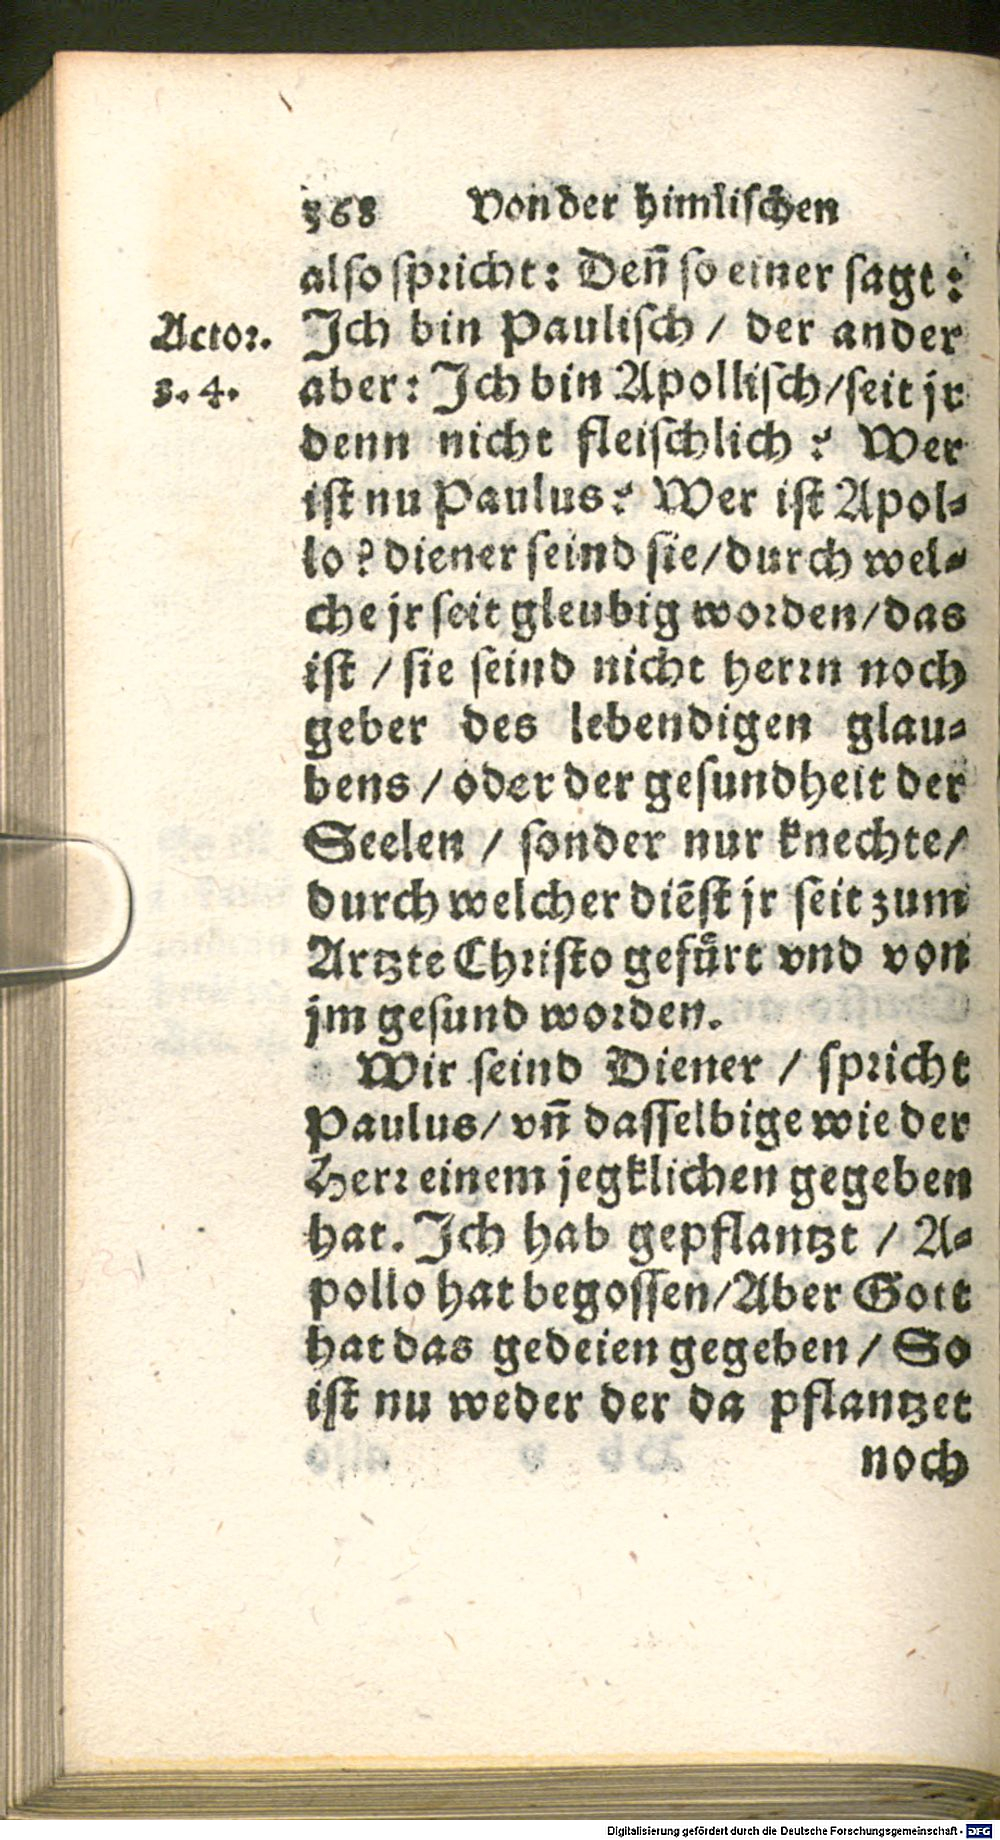 368 Von der himlischen
also spricht: Deñ so einer sagt:
Actor. 3. 4.
Ich bin Paulisch / der ander
aber: Ich bin Apollisch/seit jr
denn nicht fleischlich? Wer
ist nu Paulus? Wer ist Apol⸗
lo? diener seind sie/durch wel⸗
che jr seit gleubig worden/das
ist / sie seind nicht herrn noch
geber des lebendigen glau⸗
bens / oder der gesundheit der
Seelen / sonder nur knechte/
durch welcher diēst jr seit zum
Artzte Christo gefuͤrt vnd von
jm gesund worden.
Wir seind Diener / spricht
Paulus/ vñ dasselbige wie der
Herr einem jegklichen gegeben
hat. Ich hab gepflantzt / A⸗
pollo hat begossen/Aber Gott
hat das gedeien gegeben / So
ist nu weder der da pflantzet
noch
Digitalisierung gefördert durch die Deutsche Forschungsgemeinschaft - DFG